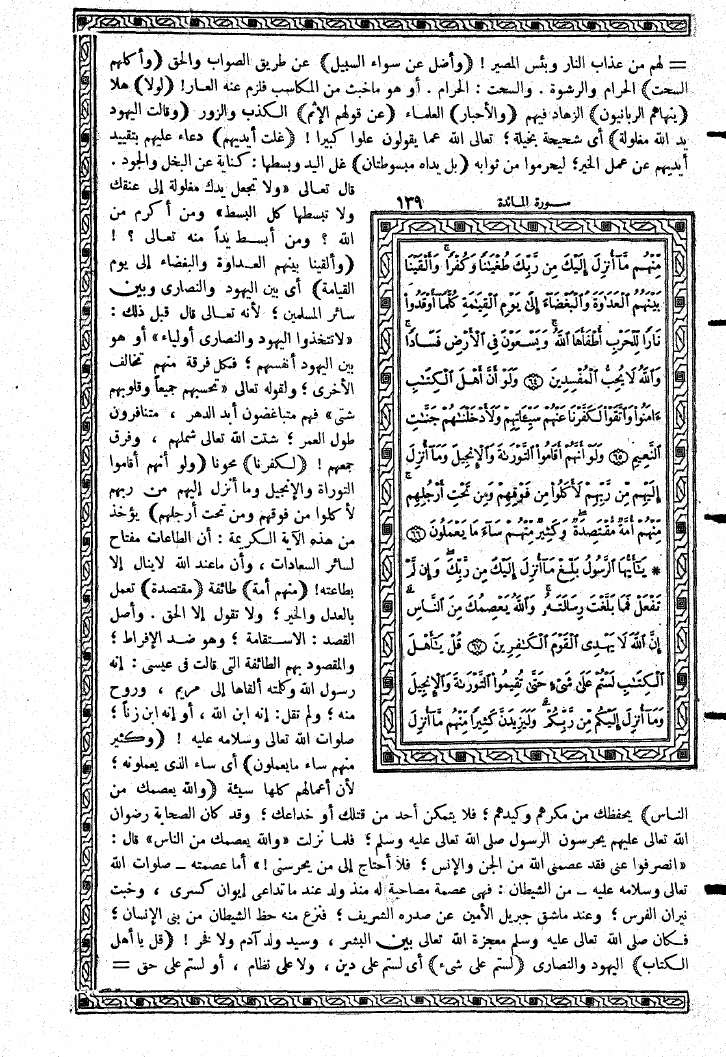 = لهم من عذاب النار وبئس المصير ! (وأضل عن سواء السبيل) عن طريق الصواب والحق (وأكلهم
السحت) الحرام والرشوة . والسحت : الحرام . أو هو ماخبث من المكاسب فلزم عنه العار! (لولا) هلا
(ينهاهم الربانيون) الزهاد فيهم (والأحبار) العلماء (عن قولهم الإثم) الكذب والزور (وقالت اليهود
يد الله مغلولة) أى شحيحة بخيلة ؛ تعالى الله عما يقولون علوا كبيرا ! (غلت أيديهم) دعاء عليهم بتقييد
أيديهم عن عمل الخير؛ ليحرموا من ثوابه (بل يداه مبسوطتان) غل اليد وبسطها : كناية عن البخل والجود .
قال تعالى «ولا تجعل يدك مغلولة إلى عنقك
ولا تبسطها كل البسط» ومن أكرم من
الله ؟ ومن أبسط يداً منه تعالى ؟ !
(وألقينا بينهم العداوة والبغضاء إلى يوم
القيامة) أى بين اليهود والنصارى وبين
سائر المسلمين ؛ لأنه تعالى قال قبل ذلك :
«لاتتخذوا اليهود والنصارى أولياء» أو هو
بين اليهود أنفسهم ؛ فكل فرقة منهم تخالف
الأخرى ؛ ولقوله تعالى «تحسبهم جميعاً وقلوبهم
شتى» فهم متباغضون أبد الدهر ، متنافرون
طول العمر ؛ شتت الله تعالى شملهم ، وفرق
جمعهم ! (لكفرنا) محونا (ولو أنهم أقاموا
التوراة والإنجيل وما أنزل إليهم من ربهم
لأكلوا من فوقهم ومن تحت أرجلهم) يؤخذ
من هذه الآية الكريمة : أن الطاعات مفتاح
لسائر السعادات ، وأن ماعند الله لاينال إلا
بطاعته! (منهم أمة) طائفة (مقتصدة) تعمل
بالعدل والخير ؛ ولا تقول إلا الحق . وأصل
القصد : الاستقامة ؛ وهو ضد الإفراط ؛
والمقصود بهم الطائفة التى قالت فى عيسى : إنه
رسول الله وكلمته ألقاها إلى مريم ، وروح
منه ؛ ولم تقل: إنه ابن الله ، أو إنه ابن زنا ؛
صلوات الله تعالى وسلامه عليه ! (وكثير
منهم ساء مايعملون) أى ساء الذى يعملونه ؛
لأن أعمالهم كلها سيئة (والله يعصمك من
سورة المائدة ١٣٩
مِّنْهُم مَّآ أُنزِلَ إِلَيْكَ مِن رَّبِّكَ طُغْيَٰنًا وَكُفْرًا ۚ وَأَلْقَيْنَا
بَيْنَهُمُ ٱلْعَدَٰوَةَ وَٱلْبَغْضَآءَ إِلَىٰ يَوْمِ ٱلْقِيَٰمَةِ كُلَّمَآ أَوْقَدُوا۟
نَارًا لِّلْحَرْبِ أَطْفَأَهَا ٱللَّهُ ۚ وَيَسْعَوْنَ فِى ٱلْأَرْضِ فَسَادًا ۚ
وَٱللَّهُ لَا يُحِبُّ ٱلْمُفْسِدِينَ ٦٤ وَلَوْ أَنَّ أَهْلَ ٱلْكِتَٰبِ
ءَامَنُوا۟ وَٱتَّقَوْا۟ لَكَفَّرْنَا عَنْهُمْ سَيِّـَٔاتِهِمْ وَلَأَدْخَلْنَٰهُمْ جَنَّٰتِ
ٱلنَّعِيمِ ٦٥ وَلَوْ أَنَّهُمْ أَقَامُوا۟ ٱلتَّوْرَىٰةَ وَٱلْإِنجِيلَ وَمَآ أُنزِلَ
إِلَيْهِم مِّن رَّبِّهِمْ لَأَكَلُوا۟ مِن فَوْقِهِمْ وَمِن تَحْتِ أَرْجُلِهِم ۚ
مِّنْهُمْ أُمَّةٌ مُّقْتَصِدَةٌ ۖ وَكَثِيرٌ مِّنْهُمْ سَآءَ مَا يَعْمَلُونَ ٦٦
* يَٰٓأَيُّهَا ٱلرَّسُولُ بَلِّغْ مَآ أُنزِلَ إِلَيْكَ مِن رَّبِّكَ ۖ وَإِن لَّمْ
تَفْعَلْ فَمَا بَلَّغْتَ رِسَالَتَهُۥ ۚ وَٱللَّهُ يَعْصِمُكَ مِنَ ٱلنَّاسِ ۗ
إِنَّ ٱللَّهَ لَا يَهْدِى ٱلْقَوْمَ ٱلْكَٰفِرِينَ ٦٧ قُلْ يَٰٓأَهْلَ
ٱلْكِتَٰبِ لَسْتُمْ عَلَىٰ شَىْءٍ حَتَّىٰ تُقِيمُوا۟ ٱلتَّوْرَىٰةَ وَٱلْإِنجِيلَ
وَمَآ أُنزِلَ إِلَيْكُم مِّن رَّبِّكُمْ ۗ وَلَيَزِيدَنَّ كَثِيرًا مِّنْهُم مَّآ أُنزِلَ
الناس) يحفظك من مكرهم وكيدهم ؛ فلا يتمكن أحد من قتلك أو خداعك ؛ وقد كان الصحابة رضوان
الله تعالى عليهم يحرسون الرسول صلى الله تعالى عليه وسلم ؛ فلما نزلت «والله يعصمك من الناس» قال :
«انصرفوا عنى فقد عصمنى الله من الجن والإنس ؛ فلا أحتاج إلى من يحرسنى !» أما عصمته – صلوات الله
تعالى وسلامه عليه – من الشيطان : فهى عصمة مصاحبة له منذ ولد عند ما تداعى إيوان كسرى ، وخبت
نيران الفرس ؛ وعند ماشق جبريل الأمين عن صدره الشريف ؛ فنزع منه حظ الشيطان من بنى الإنسان ؛
فكان صلى الله تعالى عليه وسلم معجزة الله تعالى بين البشر ، وسيد ولد آدم ولا فخر ! (قل يا أهل
الكتاب) اليهود والنصارى (لستم على شىء) أى لستم على دين ، ولا على نظام ، أو لستم على حق =